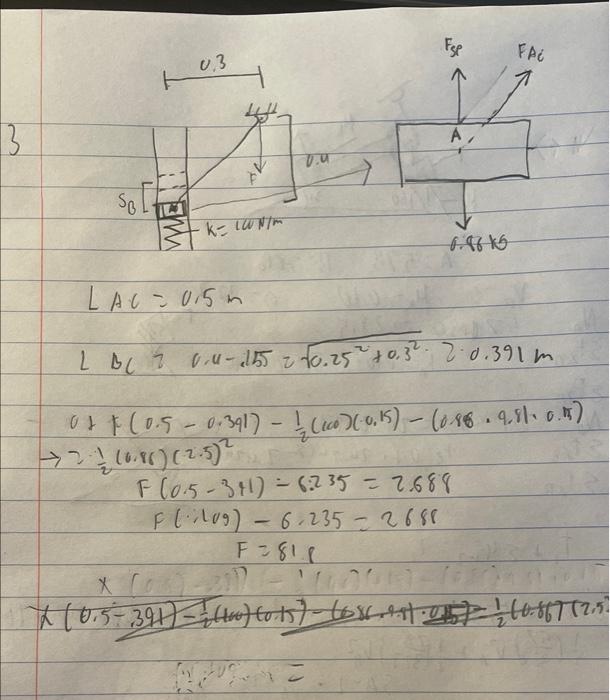 3
0.3
Fsp
FAc
A
0.4
F
SB
A
K = 100 N/m
0.86 kg
L AC = 0.5 m
L BC = 0.4 - .155 = √0.25² + 0.3² = 0.391 m
0 + F(0.5 - 0.391) - ½(100)(0.15) - (0.86 · 9.81 · 0.15)
→ = ½(0.86)(2.5)²
F(0.5 - 391) - 6.235 = 2.688
F(.109) - 6.235 = 2688
F = 81.8
x (0.5 - .391) - ½(100)(0.15) - (0.86 · 9.81 · 0.15) = ½(0.86)(2.5
=